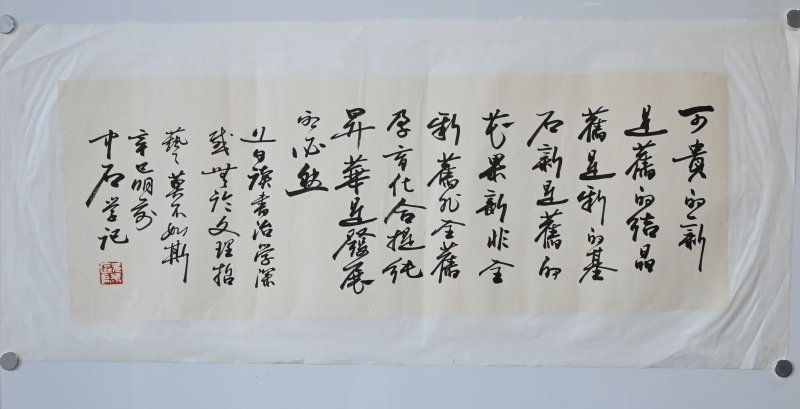 可貴的新
是舊的結晶
舊是新的基
石新是舊的
花果新非全
新舊非全舊
孕育化合提純
昇華是發展
的必然
近日讀書治學深
感無論文理哲
藝莫不如斯
辛巳明前
中石學記